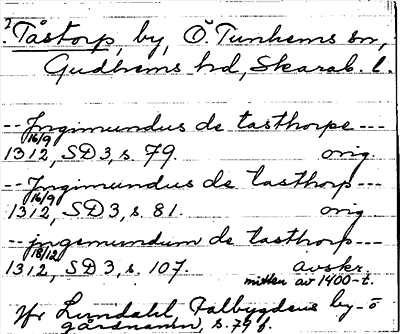 2. Tåstorp, by, Ö. Tunhems sn,
Gudhems hd, Skarab. l.
-- Ingimundus de tasthorpe ---
16/9
1312, SD 3, s. 79. orig.
-- Jngimundus de tasthorp ---
16/9
1312, SD 3, s. 81. orig
-- jngemundum de tasthorp ---
18/12
1312, SD 3, s. 107. avskr.
mitten av 1400-t.
Jfr Lundahl, Falbygdens by- o
gårdnamn, s. 79 f.